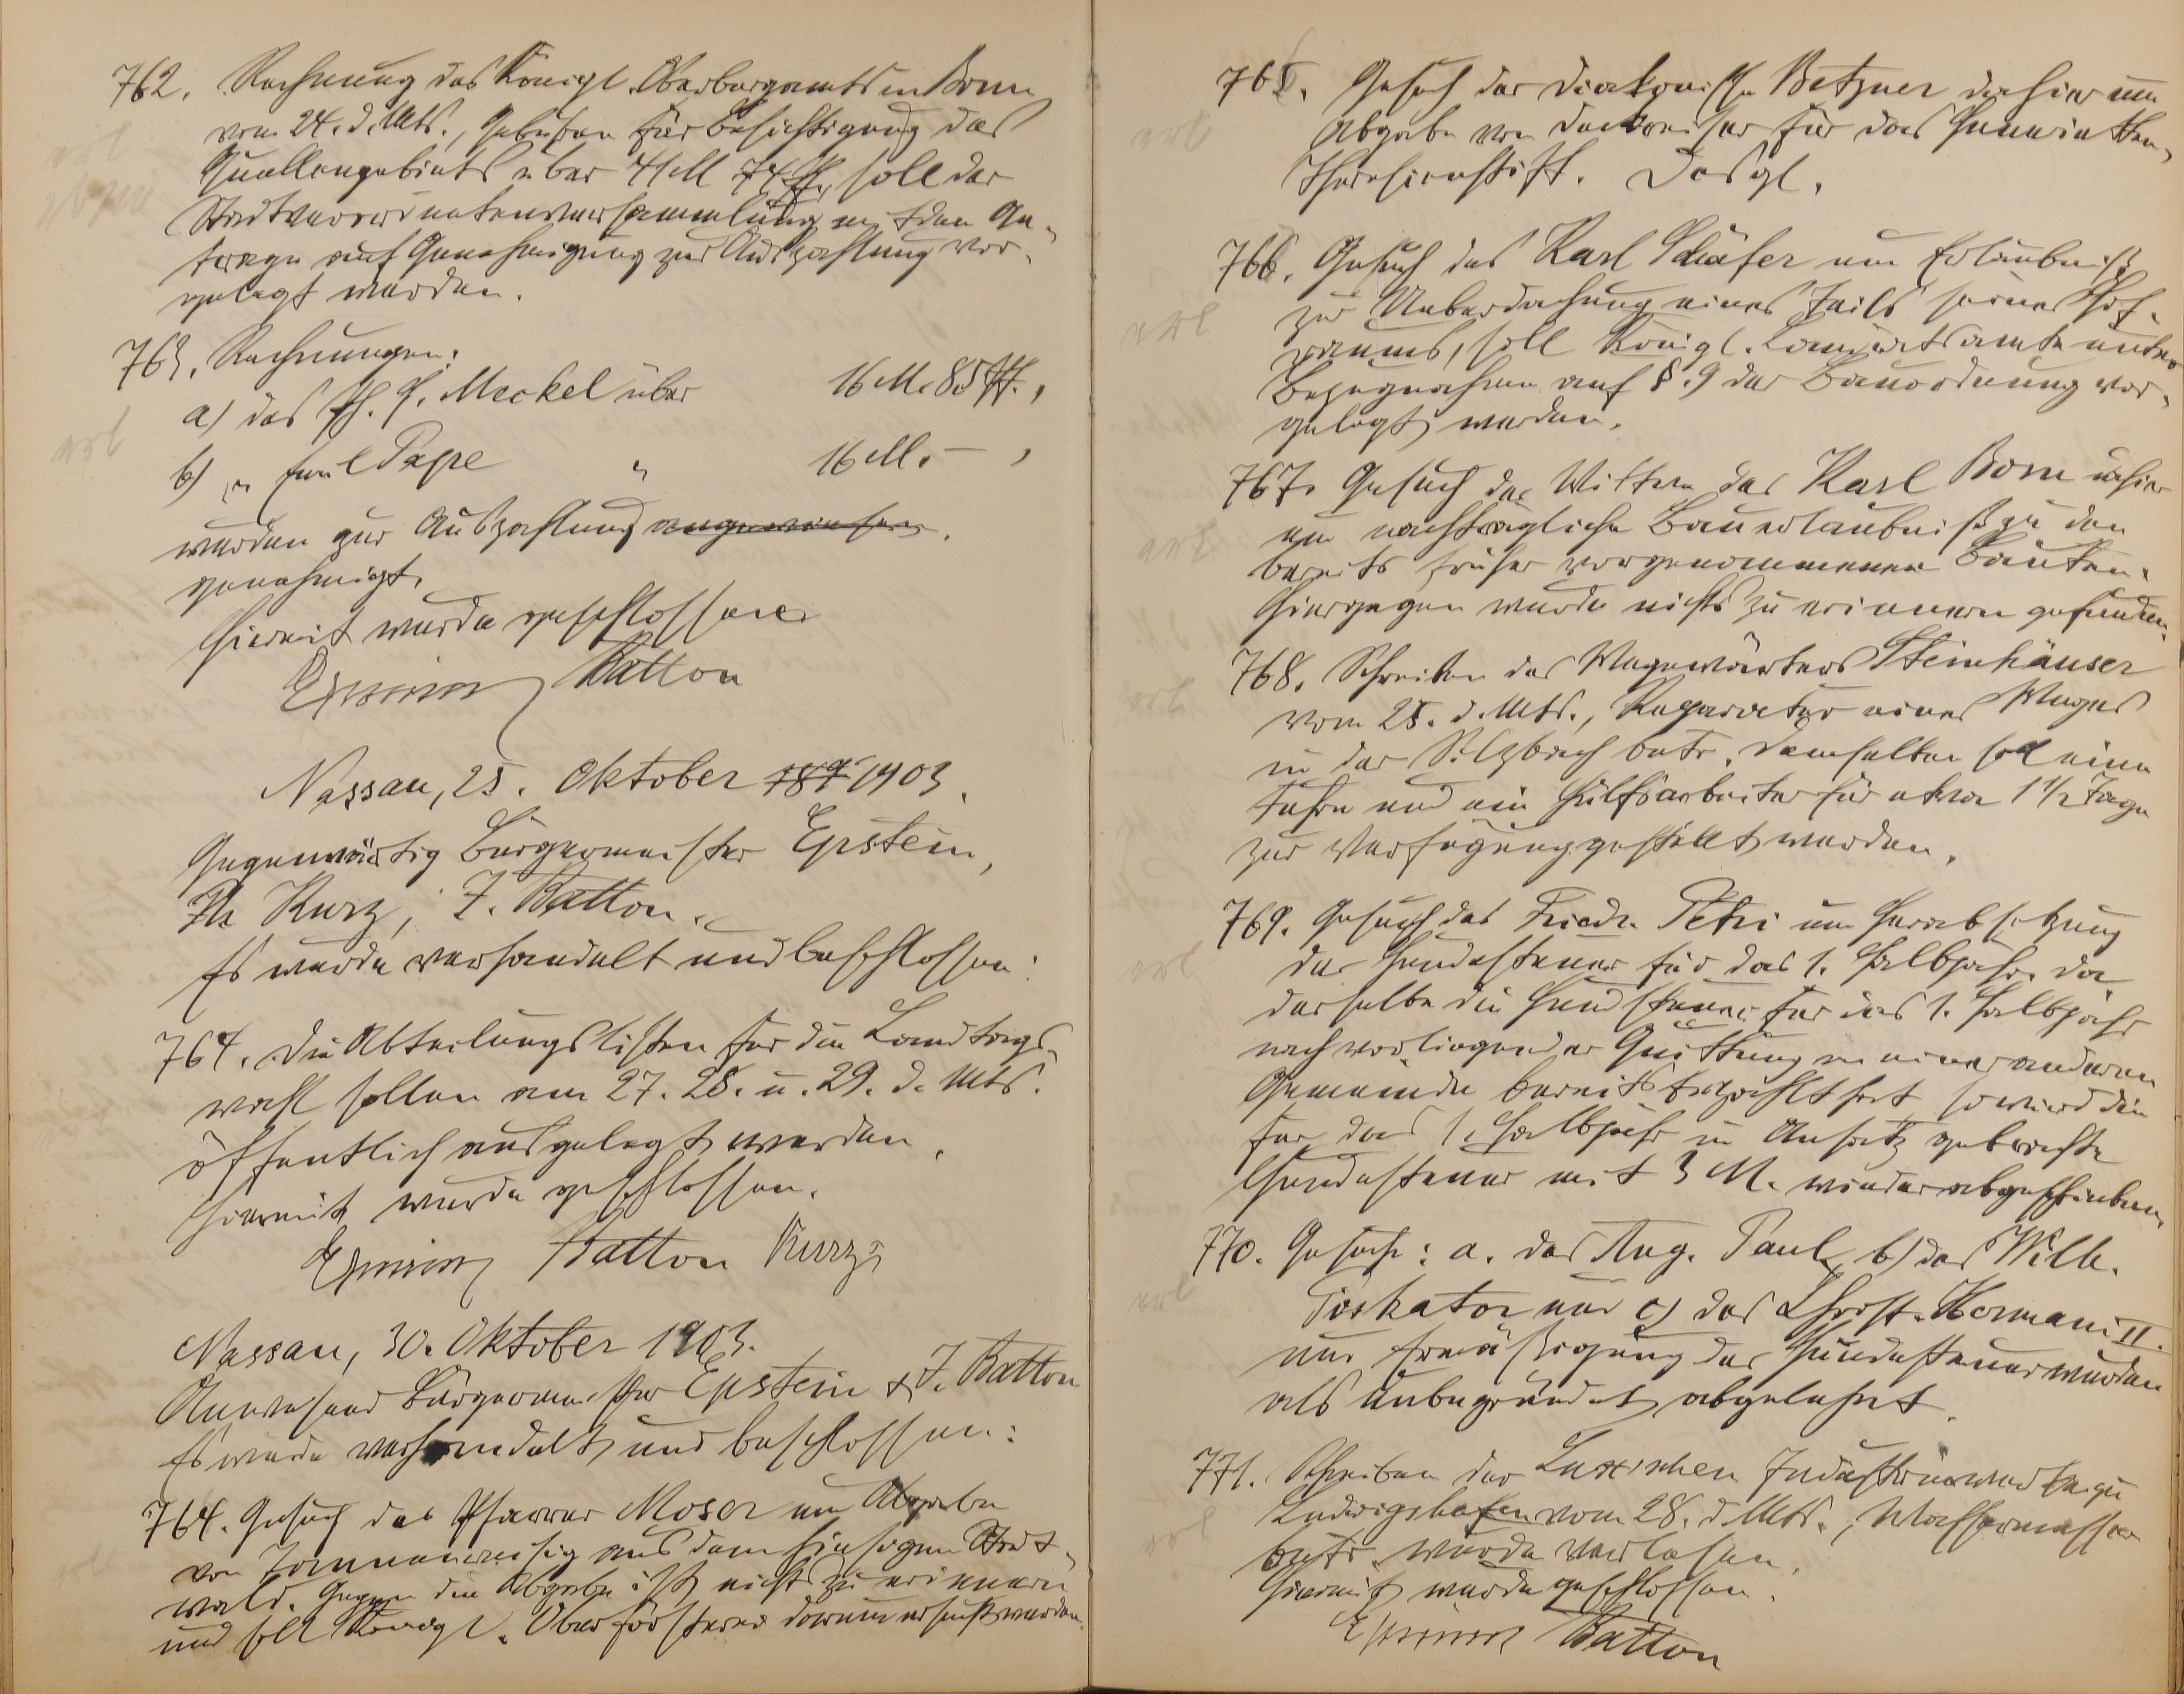 762. Rechnung des Königl. Oberbergamts in Bonn
vom 24. d. Mts., Gebühren für Besichtigung des
Quellengebiets über 41 M 74 Pf., soll der
Stadtverordnetenversammlung mit dem An-
trage auf Genehmigung zur Auszahlung vor-
gelegt werden.
763. Rechnungen:
a) des Ph. H. Meckel über 16 M. 85 Pf.,
b) " Emil Pape " 16 M. – ,
wurden zur Auszahlung angewiesen.
genehmigt.
Hiermit wurde geschlossen
Epstein Batton
Nassau, 25. Oktober 189 1903.
Gegenwärtig Bürgermeister Epstein,
Ph Kurz, F. Batton.
Es wurde verhandelt und beschlossen:
764. Die Abteilungslisten für die Landtags-
wahl sollen am 27. 28. u. 29. d. Mts.
öffentlich ausgelegt werden.
Hiermit wurde geschlossen.
Epstein Batton Kurz
Nassau, 30. Oktober 1903.
Anwesend Bürgermeister Epstein & F. Batton
Es wurde verhandelt und beschlossen:
764. Gesuch des Pfarrer Moser um Abgabe
von Tannenreisig aus dem hiesigen Stadt-
wald. Gegen die Abgabe ist nichts zu erinnern
und soll Königl. Oberförsterei darum ersucht werden.
765. Gesuch der Diakonisse Betzner dahier um
Abgabe von Deckreiser für das Henrietten-
Theresienstift. Desgl.
766. Gesuch des Karl Schäfer um Erlaubniß
zur Ueberdachung eines Teils seines Hof-
raums, soll Königl. Landratsamte unter
Bezugnahme auf §. 9 der Bauordnung vor-
gelegt werden.
767. Gesuch der Wittwe des Karl Born dahier
um nachträgliche Bauerlaubniß zu den
bereits früher vorgenommenen Bauten.
Hiergegen wurde nichts zu erinnern gefunden.
768. Schreiben des Wegewärters Steinhäuser
vom 25. d. Mts., Reparatur eines Weges
in der Silzbach betr. Demselben soll eine
Fuhre und ein Hülfsarbeiter für etwa 1 1/2 Tage
zur Verfügung gestellt werden.
769. Gesuch des Friedr. Petri um Herabsetzung
der Hundesteuer für das 1. Halbjahr. Da
derselbe die Hundsteuer für das 1. Halbjahr
nach vorliegender Quittung in einer anderen
Gemeinde bereits bezahlt hat, so wird die
für das 1. Halbjahr in Ansatz gebrachte
Hundesteuer mit 3 M. wieder abgeschrieben.
770. Gesuche: a. des Aug. Paul, b) des Wilh.
Poskator und c) des Christ. Hermani II.
um Ermäßigung der Hundesteuer wurden
als unbegründet abgelehnt.
771. Schreiben der Luxschen Industriewerke zu
Ludwigshafen vom 28. d. Mts., Wassermesser
betr. wurde verlesen.
Hiermit wurde geschlossen.
Epstein Batton